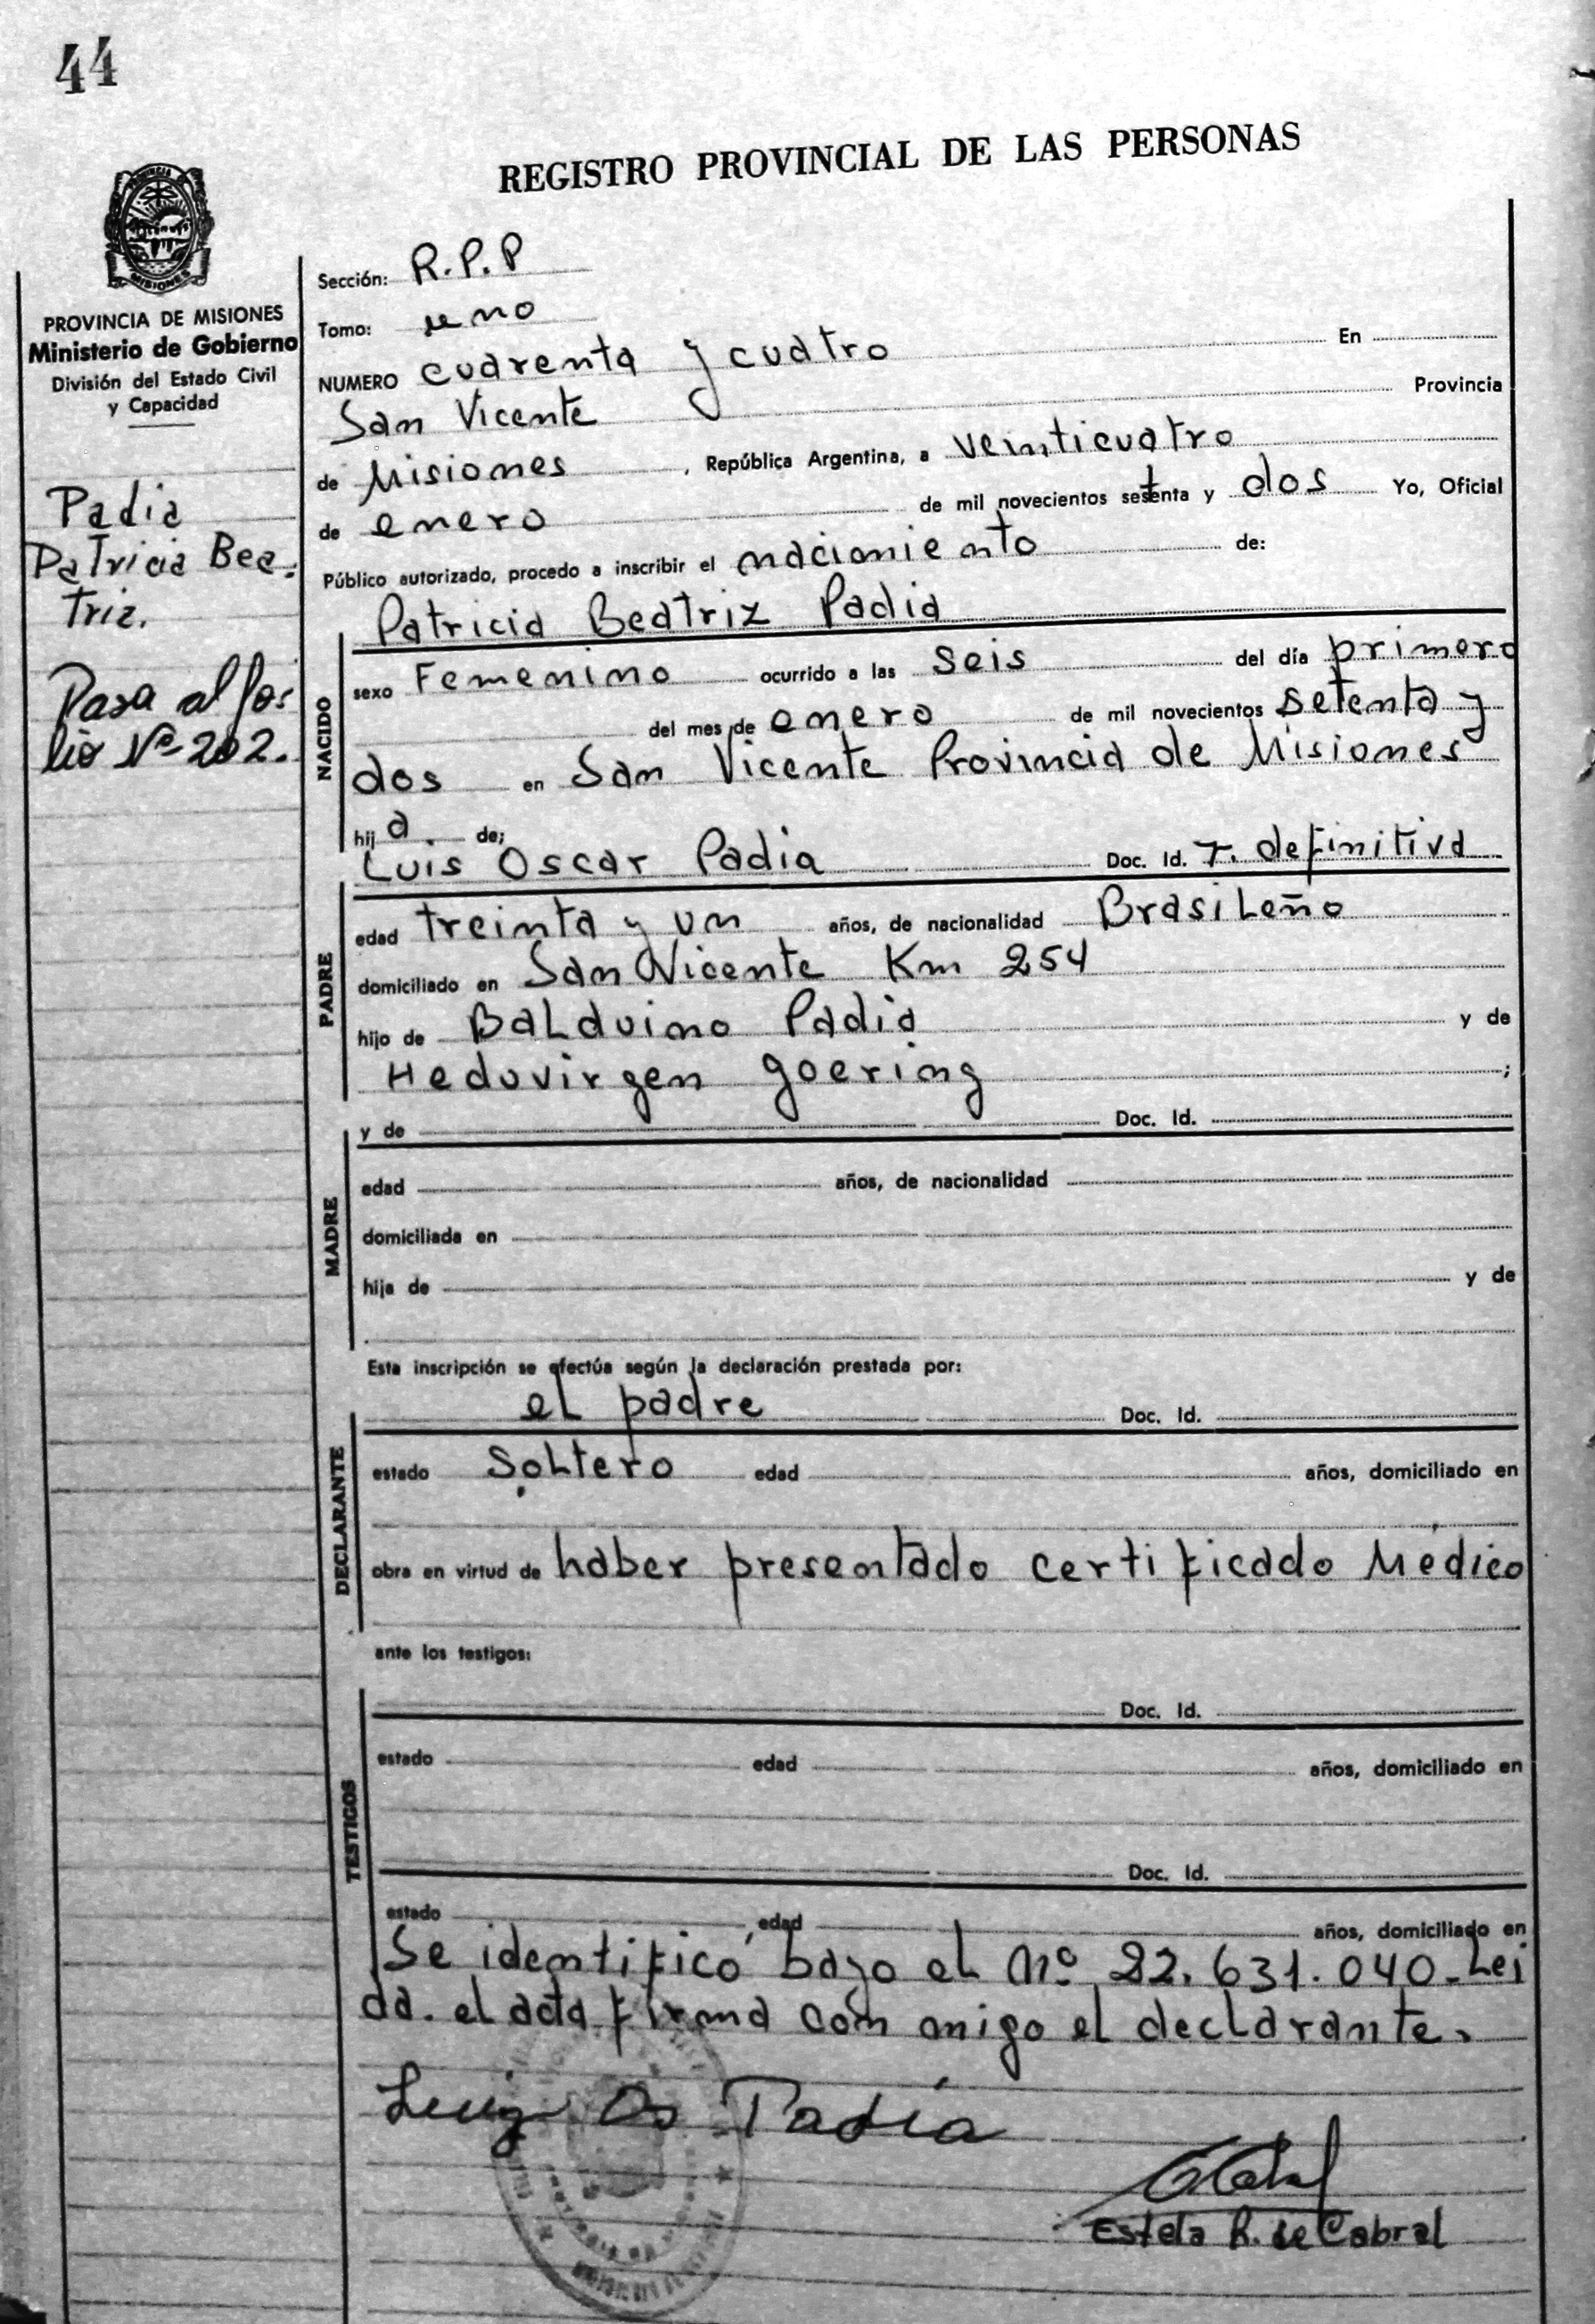 44
REGISTRO PROVINCIAL DE LAS PERSONAS
MISIONES
PROVINCIA DE MISIONES
Ministerio de Gobierno
División del Estado Civil
y Capacidad
Padia
Patricia Bea-
triz.
Pasa al fo-
lio Nº 202.
Sección: R.P.P
Tomo: uno
NUMERO cuarenta y cuatro En
San Vicente Provincia
de Misiones, República Argentina, a veinticuatro
de enero de mil novecientos setenta y dos Yo, Oficial
Público autorizado, procedo a inscribir el nacimiento de:
Patricia Beatriz Padia
NACIDO
sexo Femenino ocurrido a las seis del día primero
del mes de enero de mil novecientos setenta y
dos en San Vicente Provincia de Misiones
hija de;
Luis Oscar Padia Doc. Id. T. definitiva
PADRE
edad treinta y un años, de nacionalidad Brasileño
domiciliado en San Vicente Km 254
hijo de Balduino Padia y de
Heduvirgen Goering ;
y de Doc. Id.
MADRE
edad años, de nacionalidad
domiciliada en
hija de y de
Esta inscripción se efectúa según la declaración prestada por:
el padre Doc. Id.
DECLARANTE
estado Soltero edad años, domiciliado en
obra en virtud de haber presentado certificado Médico
ante los testigos:
Doc. Id.
TESTIGOS
estado edad años, domiciliado en
Doc. Id.
estado edad años, domiciliado en
Se identificó bajo el Nº 22.631.040. Lei
da. el acta firma con migo el declarante.
Luiz Os Padia
Estela R. de Cabral